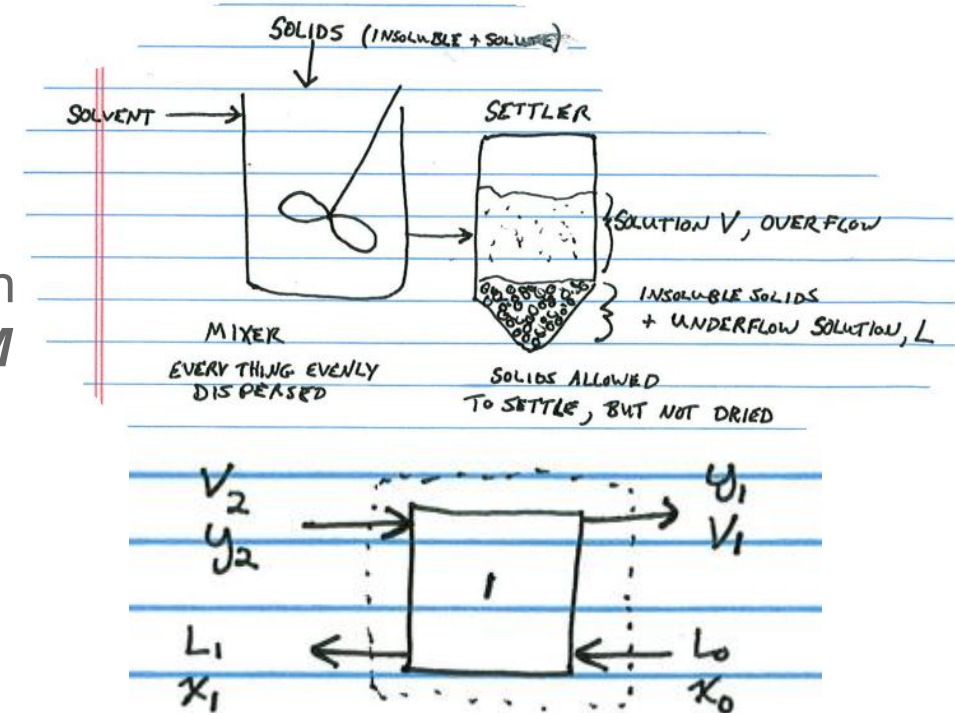 SOLIDS (INSOLUBLE + SOLUTE)
SOLVENT
SETTLER
SOLUTION V, OVERFLOW
n
M
INSOLUBLE SOLIDS
+ UNDERFLOW SOLUTION, L
MIXER
EVERYTHING EVENLY
DISPERSED
SOLIDS ALLOWED
TO SETTLE, BUT NOT DRIED
V2
y2
y1
V1
1
L1
x1
L0
x0